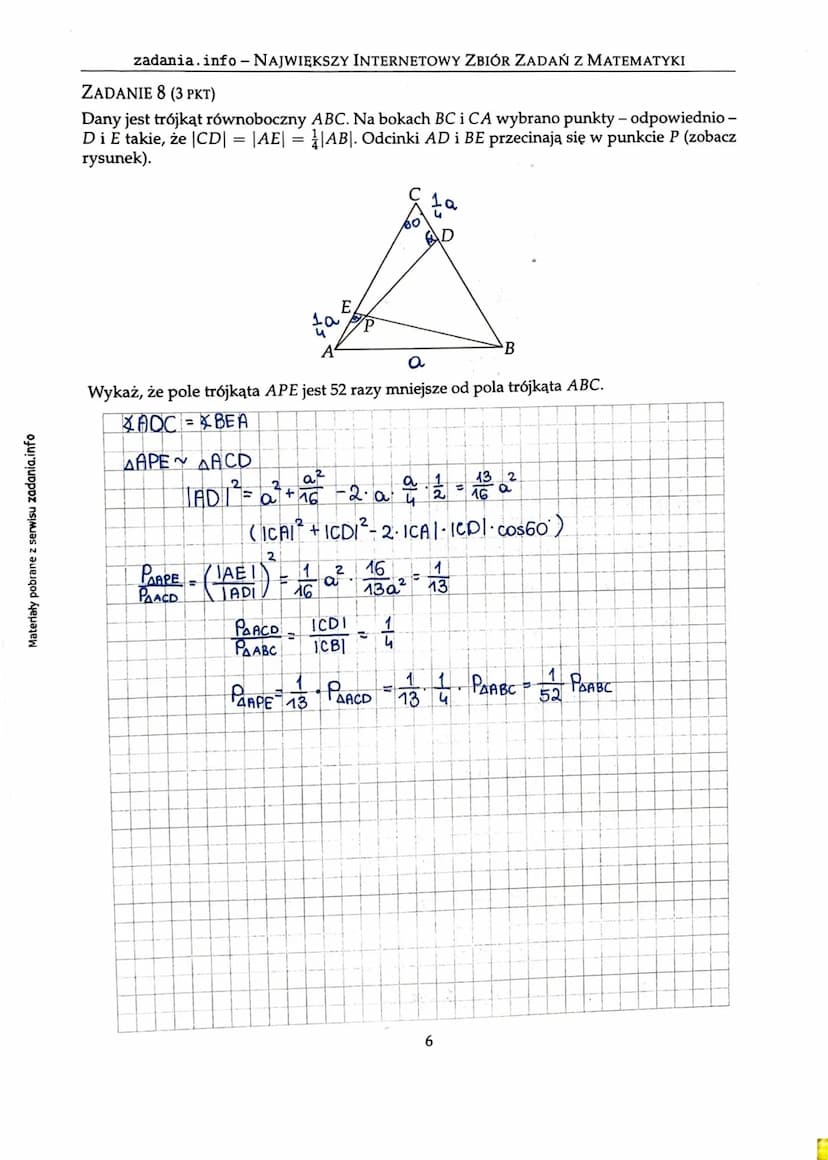 zadania.info – NAJWIĘKSZY INTERNETOWY ZBIÓR ZADAŃ Z MATEMATYKI
ZADANIE 8 (3 PKT)
Dany jest trójkąt równoboczny ABC. Na bokach BC i CA wybrano punkty – odpowiednio –
D i E takie, że |CD| = |AE| = 1/4|AB|. Odcinki AD i BE przecinają się w punkcie P (zobacz
rysunek).
C 1/4 a
60
D
E
1/4 a
P
A
B
a
Wykaż, że pole trójkąta APE jest 52 razy mniejsze od pola trójkąta ABC.
∡ADC = ∡BEA
△APE ~ △ACD
|AD|² = a² + a²/16 - 2·a·a/4·1/2 = 13/16 a²
(|CA|² + |CD|² - 2·|CA|·|CD|·cos60°)
P△APE/P△ACD = (|AE|/|AD|)² = 1/16 a² · 16/13a² = 1/13
P△ACD/P△ABC = |CD|/|CB| = 1/4
P△APE = 1/13 · P△ACD = 1/13 · 1/4 · P△ABC = 1/52 P△ABC
Materiały pobrane z serwisu zadania.info
6